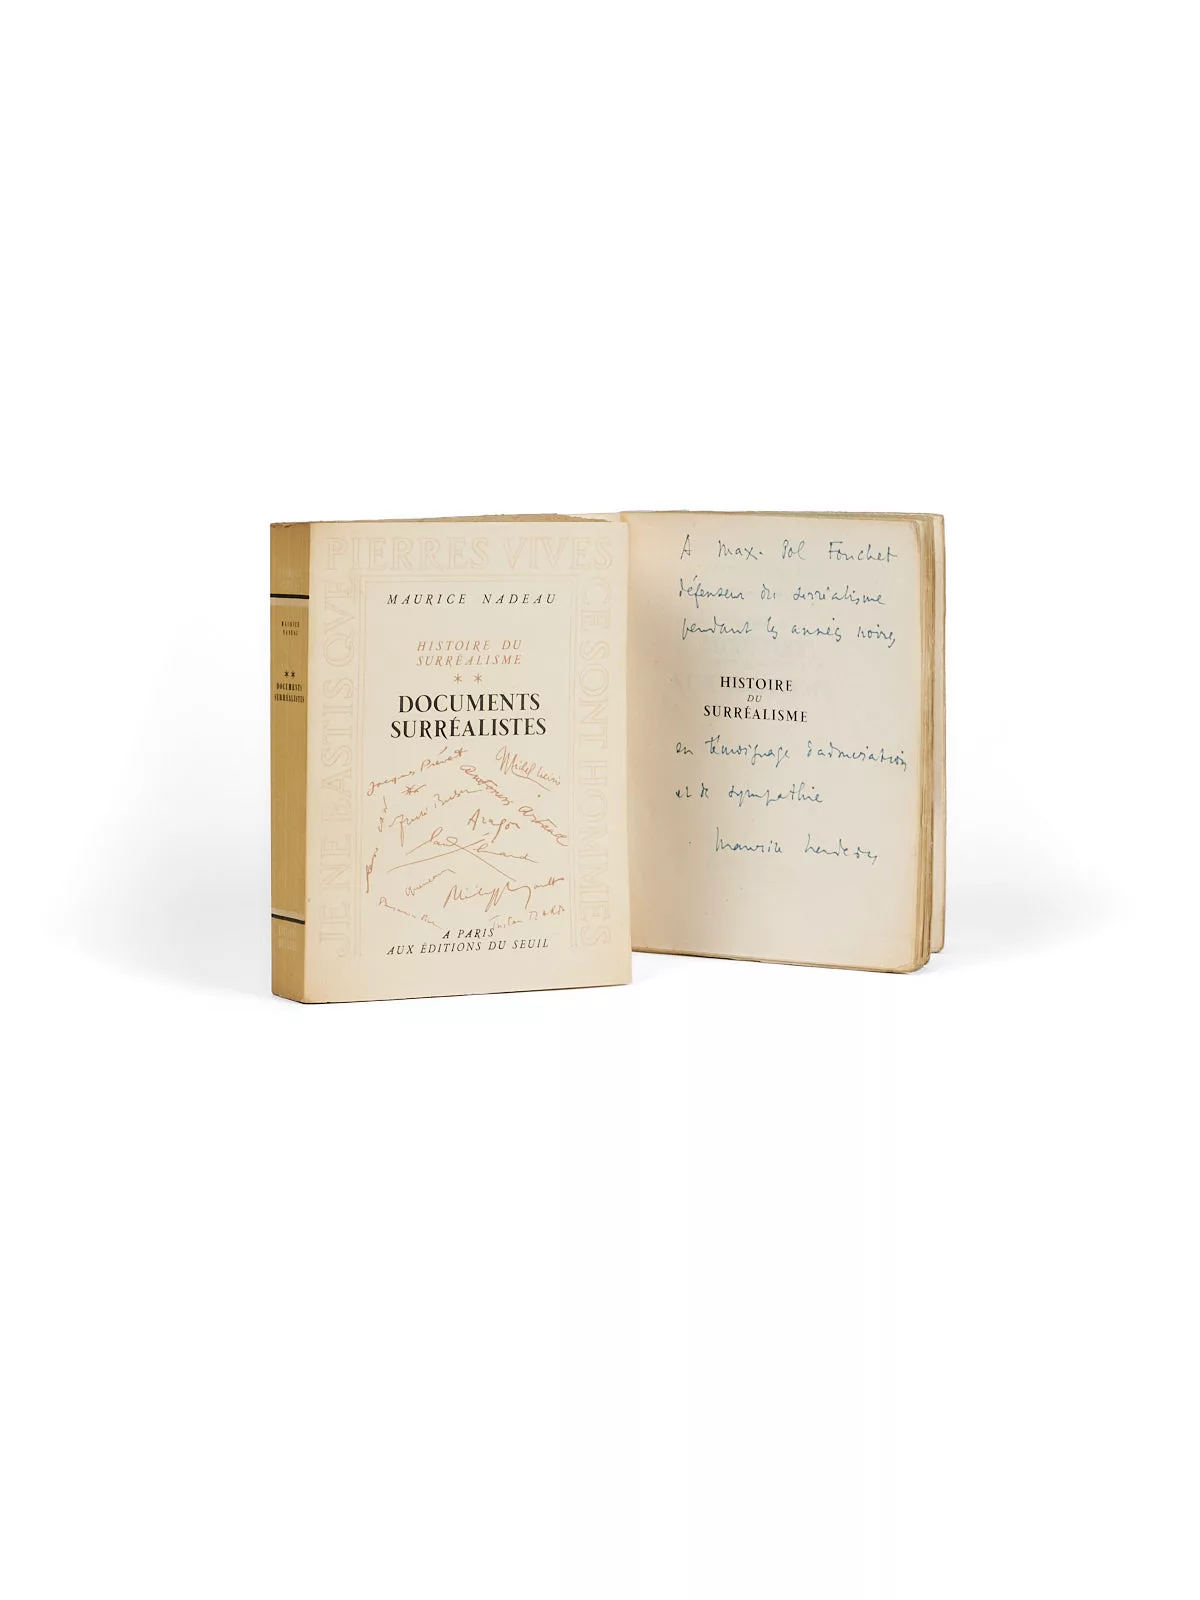 MAURICE
NADEAU
* *
DOCUMENTS
SURRÉALISTES
JE NE BASTIS QVE
PIERRES VIVES
CE SONT HOMMES
MAURICE NADEAU
HISTOIRE DU
SURRÉALISME
* *
DOCUMENTS
SURRÉALISTES
Jacques Prévert
Michel Leiris
Antonin Artaud
André Breton
Aragon
Paul Eluard
Queneau
Philippe Soupault
Tristan Tzara
A PARIS
AUX ÉDITIONS DU SEUIL
A Max-Pol Fouchet
défenseur du surréalisme
pendant les années noires
HISTOIRE
DU
SURRÉALISME
en témoignage d'admiration
et de sympathie
Maurice Nadeau